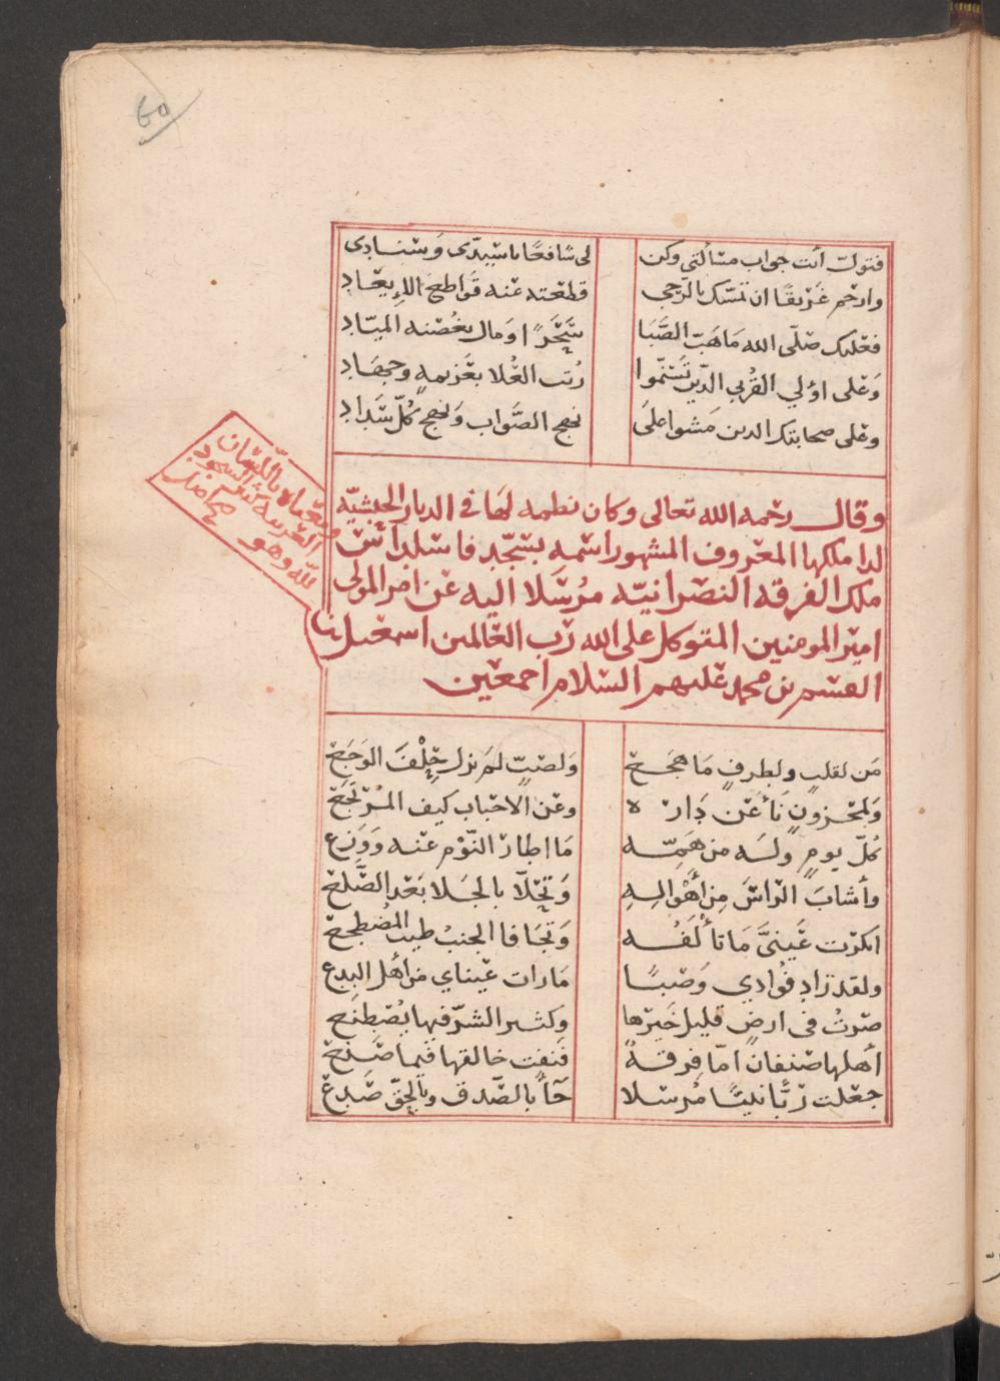 60
فتولّ أنت جواب مسألتي وكن لي شافعًا يا سيدي وسنادي
وارحم غريقًا ان تمسّك بالرجى قطعته عنه قواطع الابعاد
فعليك صلّى الله ما هبّ الصَّبا سَحَرًا ومال بغُصْنه الميّاد
وَعلى اولي القُربى الذين تسنّموا رُتب العُلا بعَزيمةٍ وجهَاد
وعلى صحابتك الدين مَشوا على نهج الصَّواب وَنهج كُلّ سَداد
وقال رحمه الله تعالى وكان نظمه لها في الديار الحبشيّه
لدا ملكها المعروف المشهور اسمه بسَجّد فاسلداس
ملك الفرقه النصرانيّه مُرسَلا اليه عن امر المولى
امير المومنين المتوكل على الله رَبّ العالمين اسمعيل بن
القسم بن محمد عليهم السَّلام اجمعين
معناه باللسان
العربيه السجود
لله وهو
مَن لقلبٍ ولطرفٍ مَا هجَع وَلصَبٍّ لمَ يزل خِلْفَ الوَجَع
وَلمحزونٍ نَأ عَن دَاره وعن الاحباب كيف المُرتجَع
كلّ يومٍ ولَه من هَمّه مَا اطار النّوْم عنه وَوَزع
وأشابَ الرّاسَ مِن أهْواله وَتحَلّا بالجَلا بَعْد الصَّلع
انكرت عَينيَّ مَا تألفُه وَتجَافا الجنبُ طيب المُضطجع
ولقد زاد فُوادي وَصَبًا مَا رات عَيناي من اهْل البدع
صرتُ في ارضٍ قليل خَيرها وكثير الشرّ فيها يُصْطنَع
أهلها صنفان امّا فِرقةٌ فنفت خالقها فيما صَنع
جعلت رَبًّا نبيًا مُرسَلا جَآءَ بالصَّدق وبالحقّ صَدع